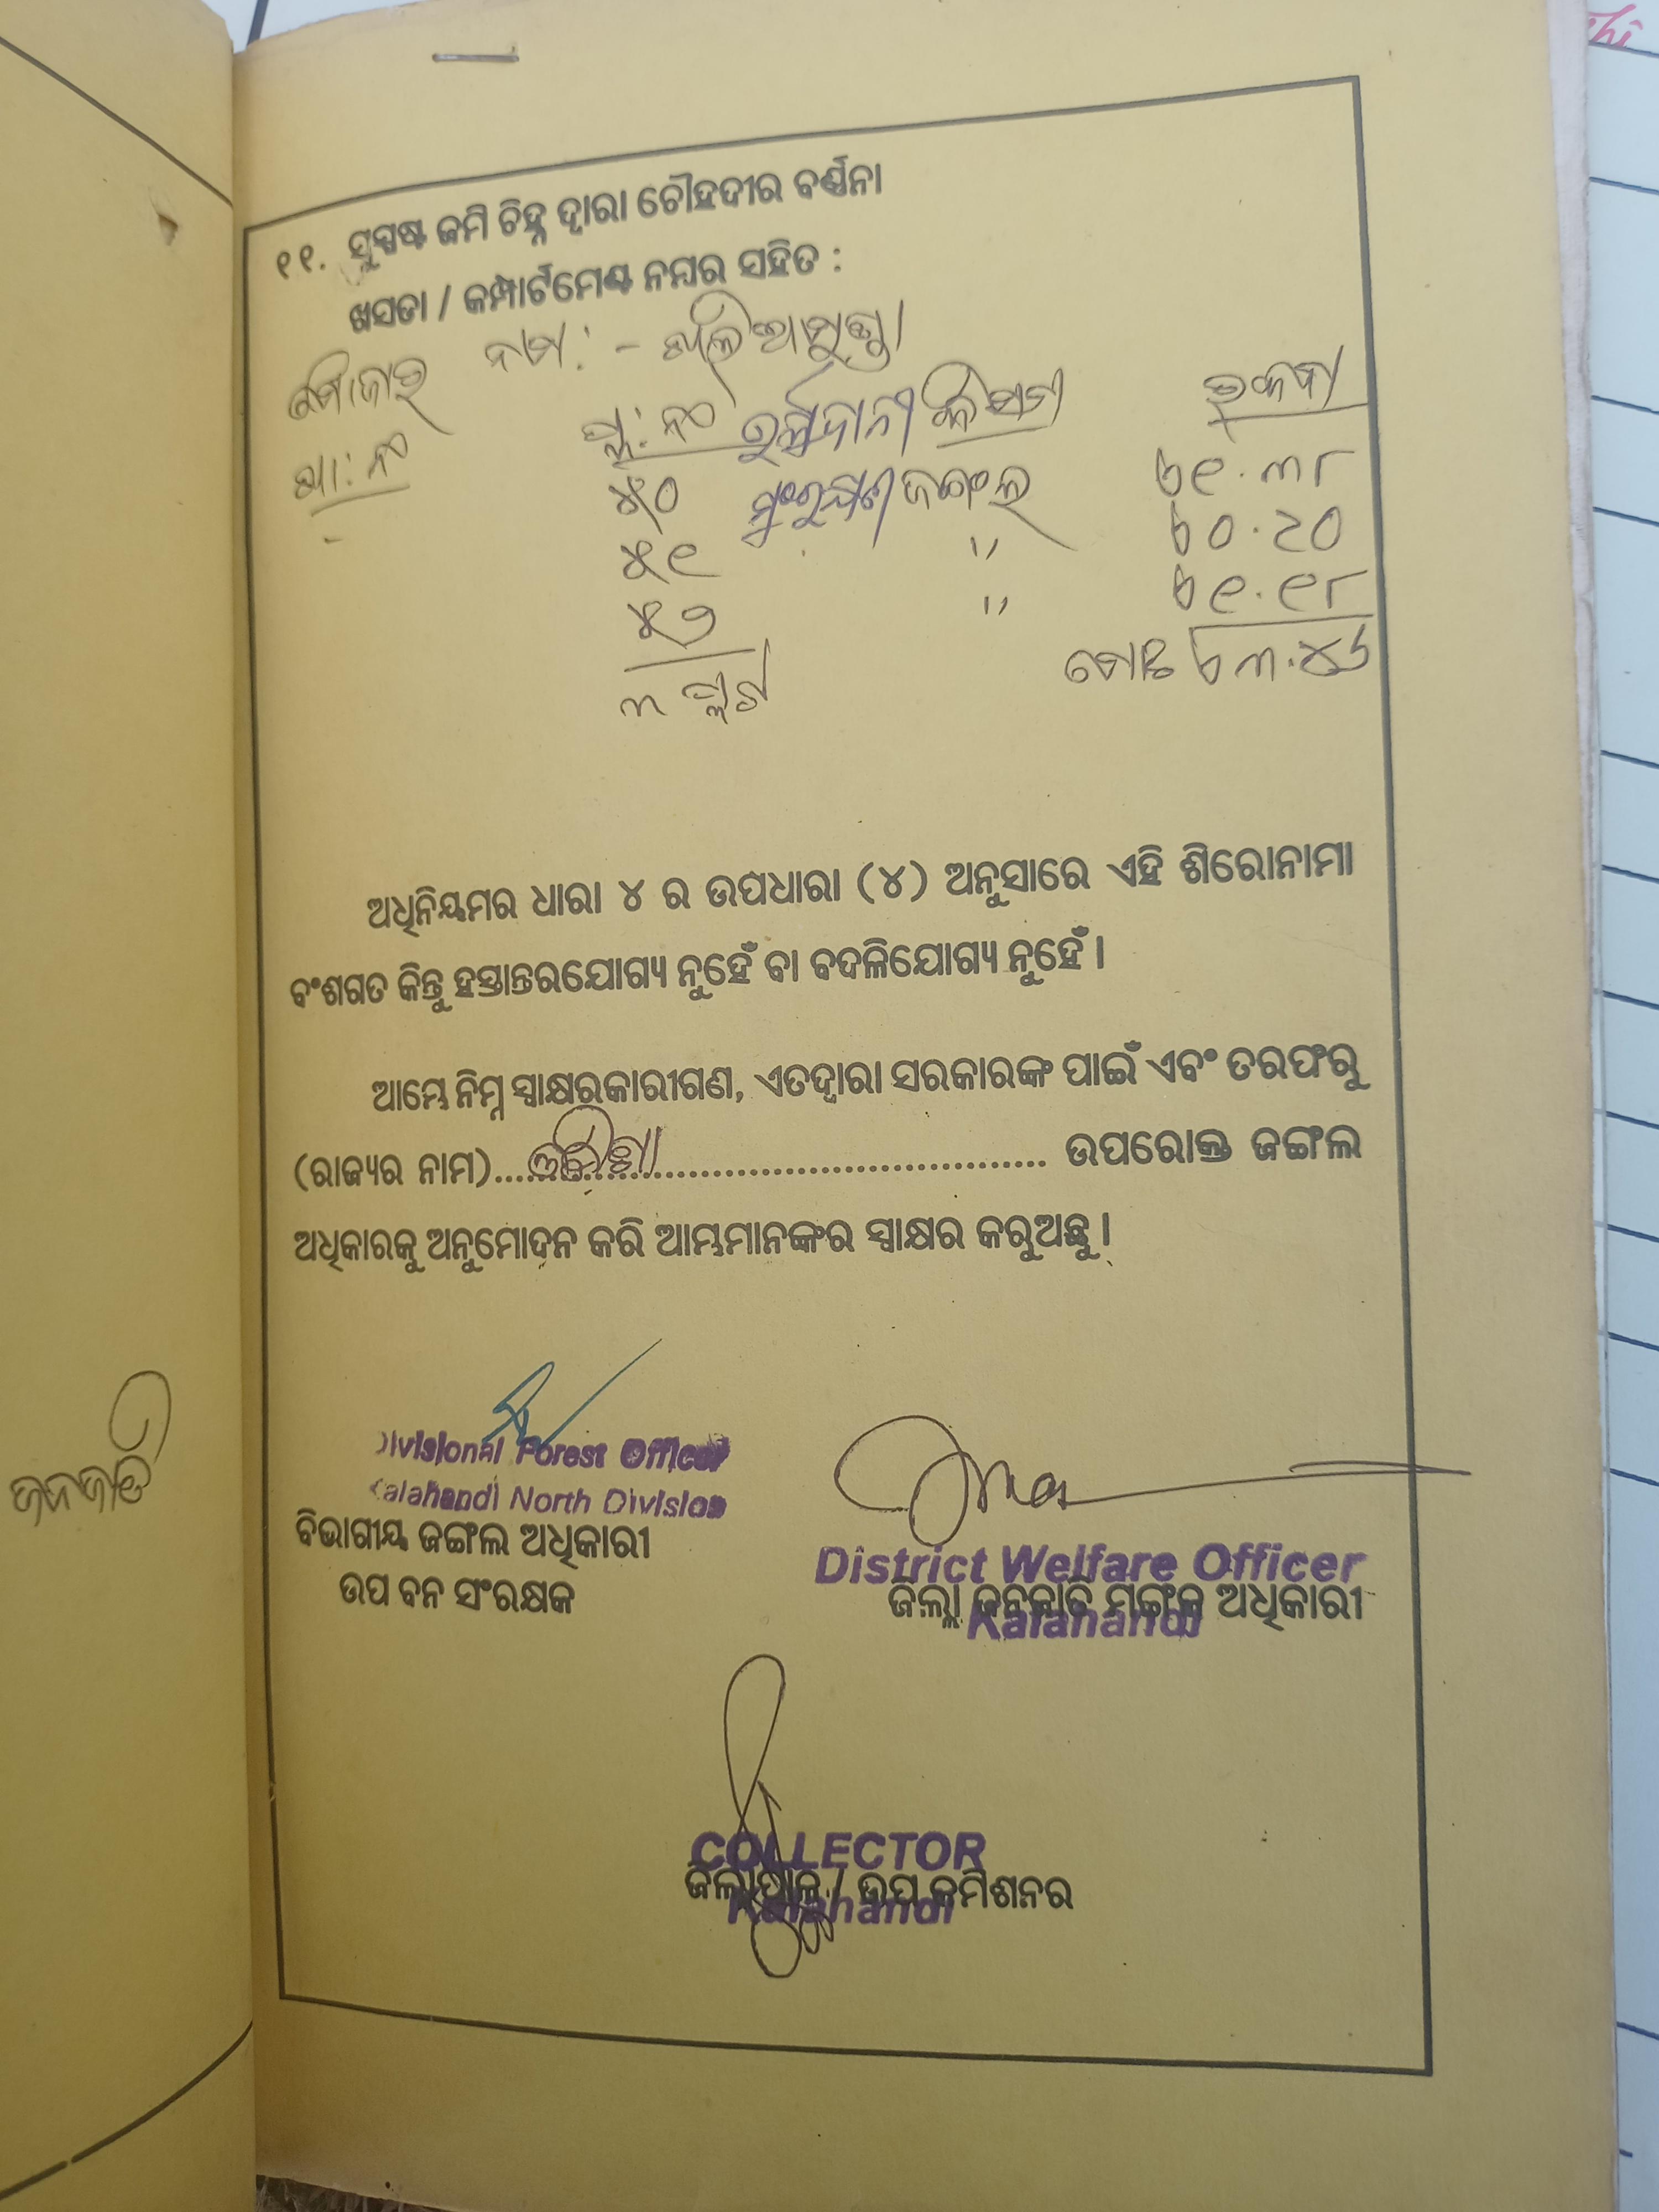 ୧୧. ସୁସ୍ପଷ୍ଟ ଜମି ଚିହ୍ନ ଦ୍ଵାରା ଚୌହଦୀର ବର୍ଣ୍ଣନା
ଖସଡା / କମ୍ପାର୍ଟମେଣ୍ଟ ନମ୍ବର ସହିତ :
ମୌଜାର ନାମ :- ଖଲିଆମୁଣ୍ଡା
ଖା: ନଂ ପ୍ଲ: ନଂ କିସମ ରକବା
୫୦ ଜଙ୍ଗଲ ୧.୩୮
୫୧ " ୦.୨୦
୫୨ " ୧.୧୮
୩ ପ୍ଲଟ ମୋଟ ୩.୪୬
ଅଧିନିୟମର ଧାରା ୪ ର ଉପଧାରା (୪) ଅନୁସାରେ ଏହି ଶିରୋନାମା
ବଂଶଗତ କିନ୍ତୁ ହସ୍ତାନ୍ତରଯୋଗ୍ୟ ନୁହେଁ ବା ବଦଳିଯୋଗ୍ୟ ନୁହେଁ ।
ଆମ୍ଭେ ନିମ୍ନ ସ୍ଵାକ୍ଷରକାରୀଗଣ, ଏତଦ୍ଵାରା ସରକାରଙ୍କ ପାଇଁ ଏବଂ ତରଫରୁ
(ରାଜ୍ୟର ନାମ)....ଓଡ଼ିଶା.... ଉପରୋକ୍ତ ଜଙ୍ଗଲ
ଅଧିକାରକୁ ଅନୁମୋଦନ କରି ଆମ୍ଭମାନଙ୍କର ସ୍ଵାକ୍ଷର କରୁଅଛୁ ।
Divisional Forest Officer
Kalahandi North Division
ବିଭାଗୀୟ ଜଙ୍ଗଲ ଅଧିକାରୀ
ଉପ ବନ ସଂରକ୍ଷକ
District Welfare Officer
ଜିଲ୍ଲା ଜନଜାତି ମଙ୍ଗଳ ଅଧିକାରୀ
Kalahandi
COLLECTOR
ଜିଲ୍ଲାପାଳ / ଉପ କମିଶନର
Kalahandi
ଜନଜାତି